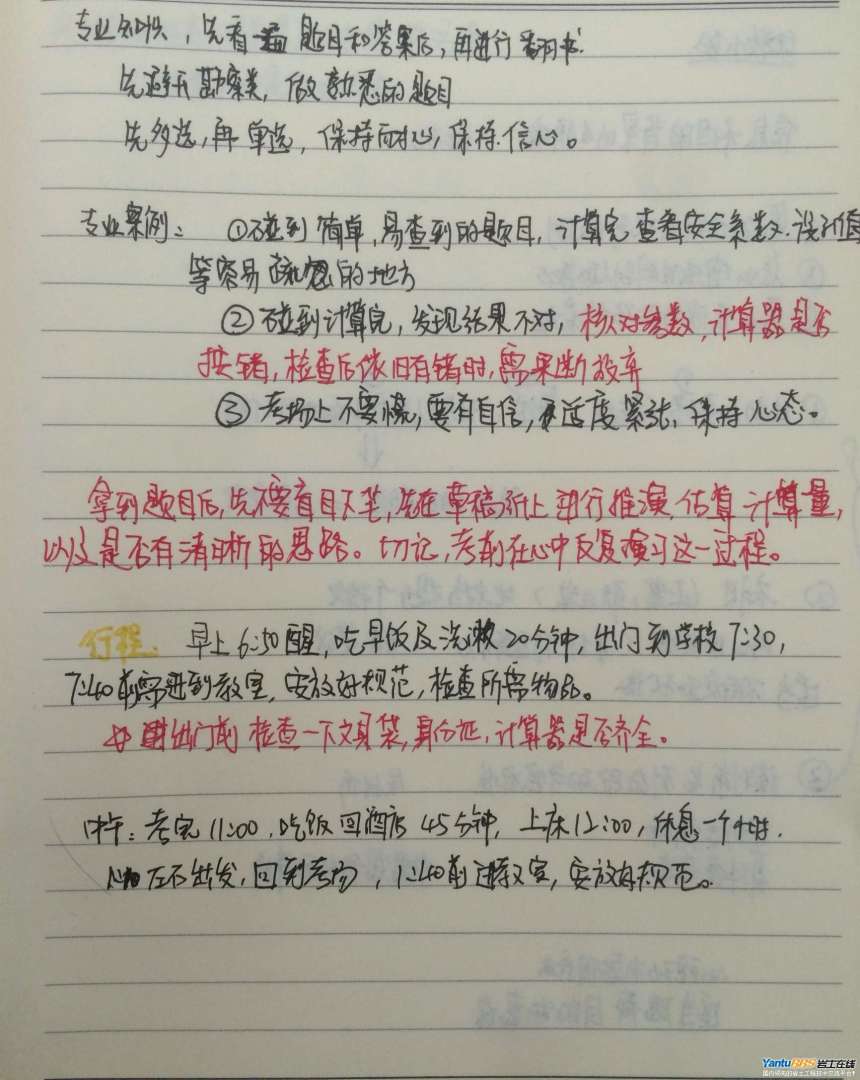 专业知识，先看一遍题目和答案后，再进行翻书.
先避开勘察类，做熟悉的题目
先多选，再单选，保持耐心，保持信心。
专业案例：①碰到简单，易查到的题目，计算完查看安全系数.设计值
等容易疏忽的地方
②碰到计算完，发现结果不对，核对参数，计算器是否
按错，检查后依旧有错时，需果断放弃
③考场上不要慌，要有自信，适度紧张、保持心态。
拿到题目后，先不要盲目下笔，先在草稿纸上进行推演.估算计算量，
以及是否有清晰的思路。切记，考前在心中反复演习这一过程。
行程：早上6:50醒，吃早饭及洗漱20分钟，出门到学校7:30，
7:40前需进到教室，安放好规范，检查所需物品。
出门前检查一下文具袋，身份证，计算器是否齐全。
中午：考完11:00，吃饭回酒店45分钟，上床12:00，休息一个小时.
左右出发，回到考场，1:40前进教室，安放好规范。
Yantu 岩土在线
国内领先的岩土工程技术交流平台